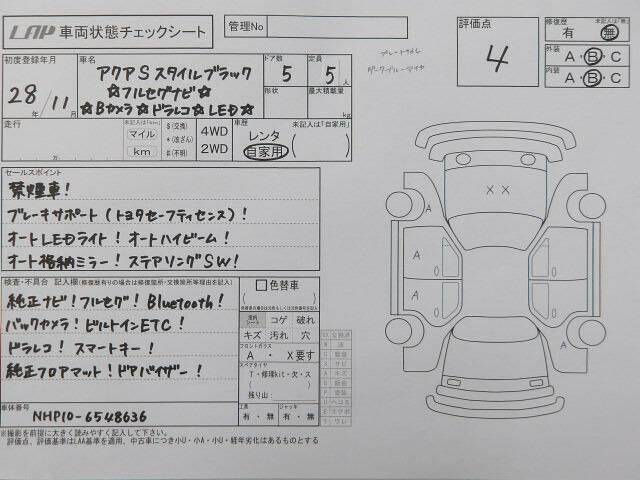 LAP 車両状態チェックシート
管理No
評価点
4
修復歴 未記入は「無」
有 無
外装
A・B・C
内装
A・B・C
初度登録年月
28年 11月
車名
アクア S スタイルブラック
☆フルセグナビ☆
☆Bカメラ☆ドラレコ☆LED☆
ドア数
5
定員
5人
形状
最大積載量
kg
走行
未記入は「km」
マイル
km
$(交換)
*(改ざん)
#(不明)
4WD
2WD
車歴
未記入は「自家用」
レンタ
自家用
セールスポイント
禁煙車!
ブレーキサポート(トヨタセーフティセンス)!
オートLEDライト! オートハイビーム!
オート格納ミラー! ステアリングSW!
検査・不具合 記入欄(修復歴有りの場合は修復箇所・交換箇所等理由を記入)
純正ナビ!フルセグ! Bluetooth!
バックカメラ! ビルトインETC!
ドラレコ! スマートキー!
純正フロアマット! ドアバイザー!
色替車
コゲ 破れ
キズ 汚れ 穴
フロントガラス
A ・ X要す
スペアタイヤ
T・修理kit・欠・ス
残り山:
工具
有・無
ジャッキ
有・無
車体番号
NHP10-6548636
※収容を前提に大きく読みやすく記入して下さい。
評価点、評価基準はLAA基準を適用、中古車につき小U・小A・小U・経年劣化はあるものとする
X X
A
A
A
A